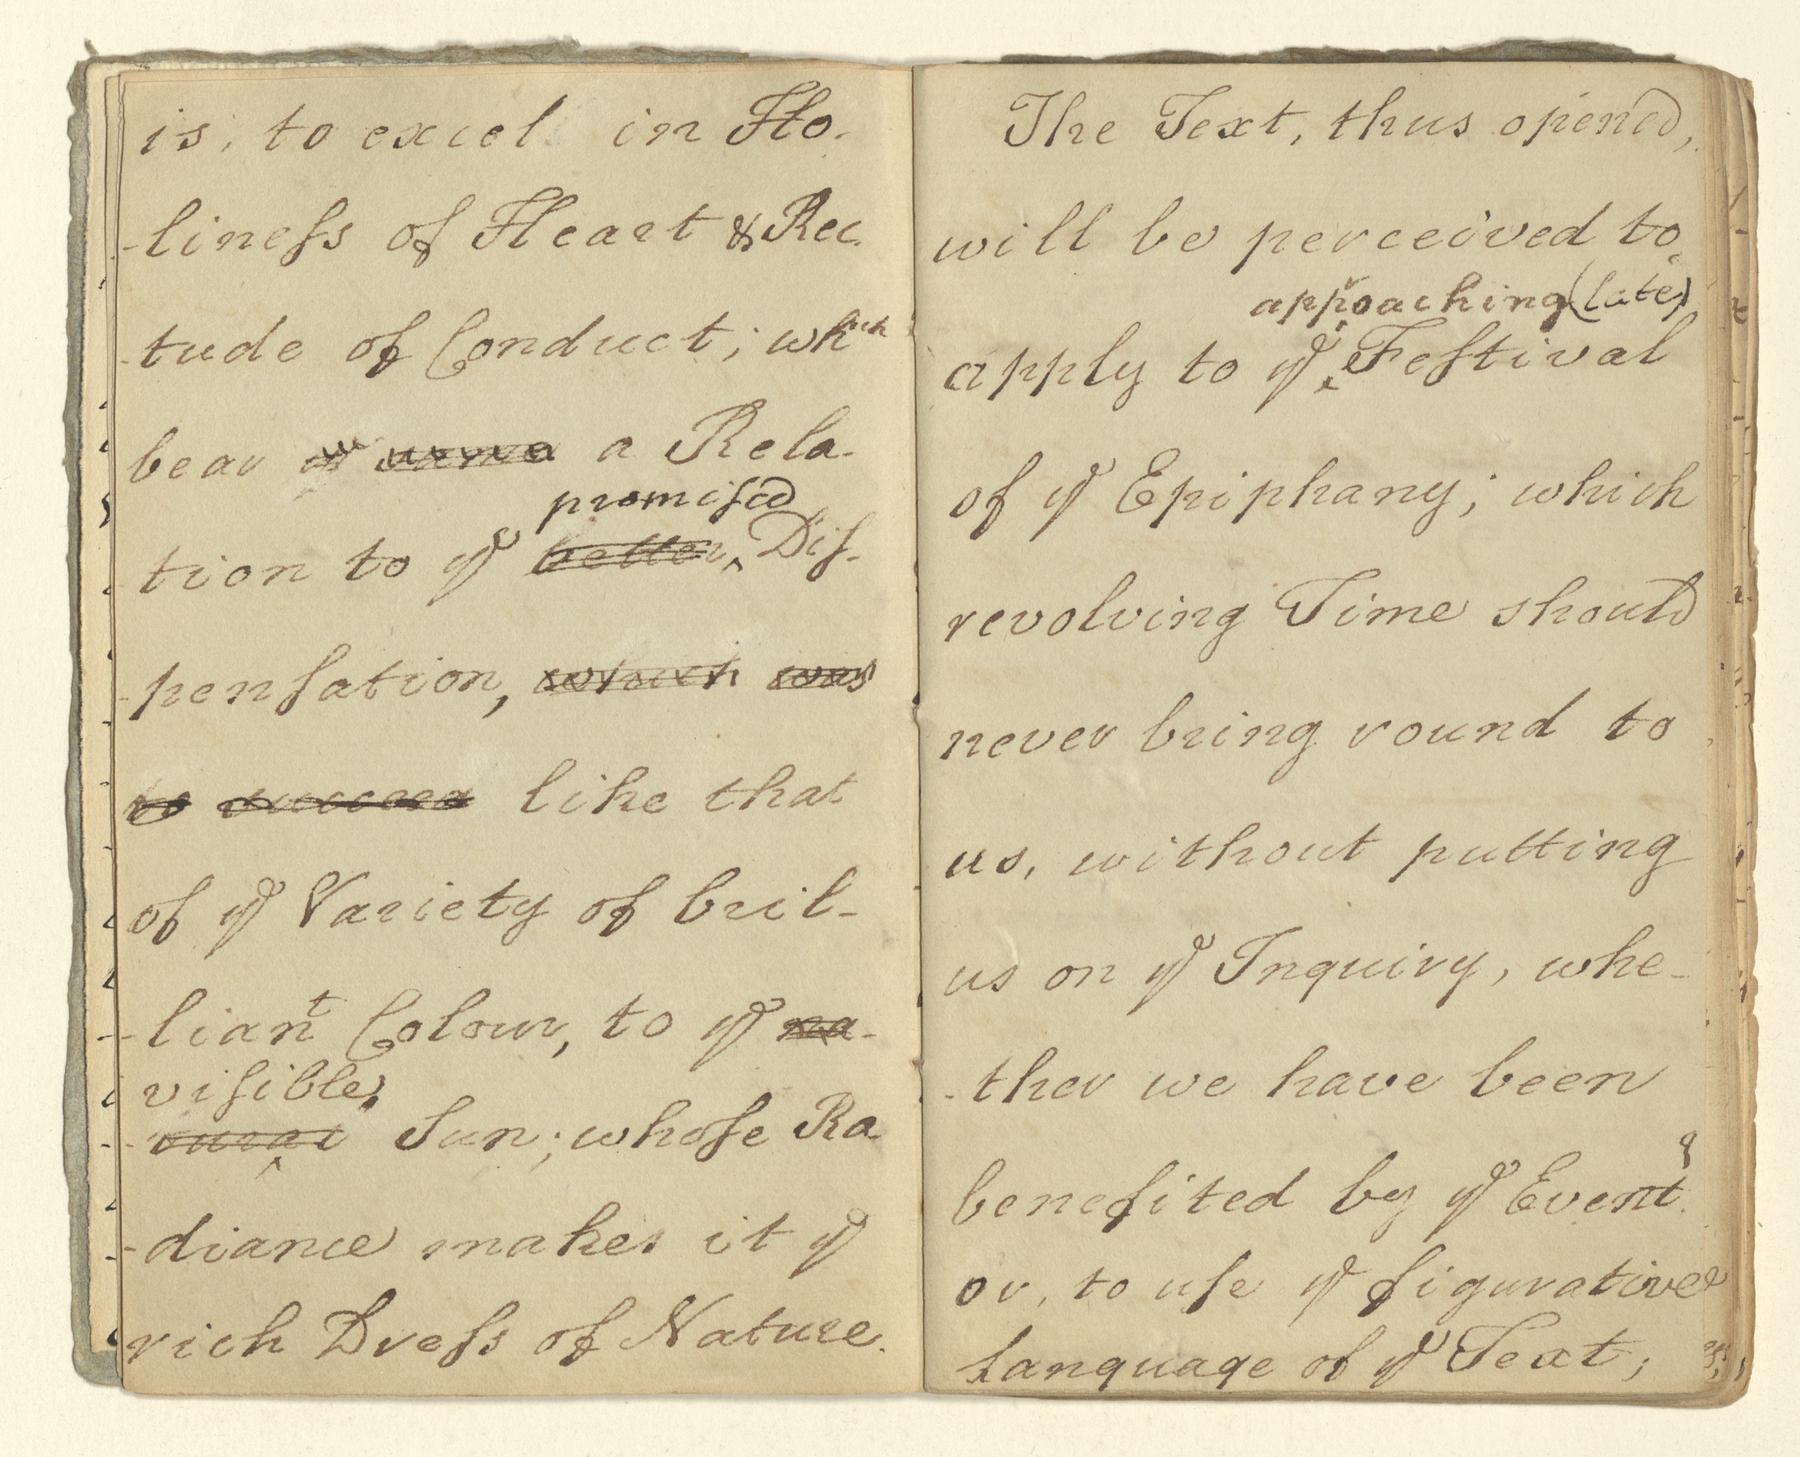 is, to excel in Ho-
-liness of Heart & Rec-
-tude of Conduct; which
bear a Rela-
promised
tion to ye better Dis-
-pensation, which was
to succeed like that
of ye Variety of bril-
-liant Colour, to ye na-
visible
-tural Sun; whose Ra-
-diance makes it ye
rich Dress of Nature.
The Text, thus opened,
will be perceived to
appoaching (late)
apply to ye Festival
of ye Epiphany; which
revolving Time should
never bring round to
us, without putting
us on ye Inquiry, whe-
-ther we have been
benefited by ye Event?
or, to use ye figurative
Language of ye Text,